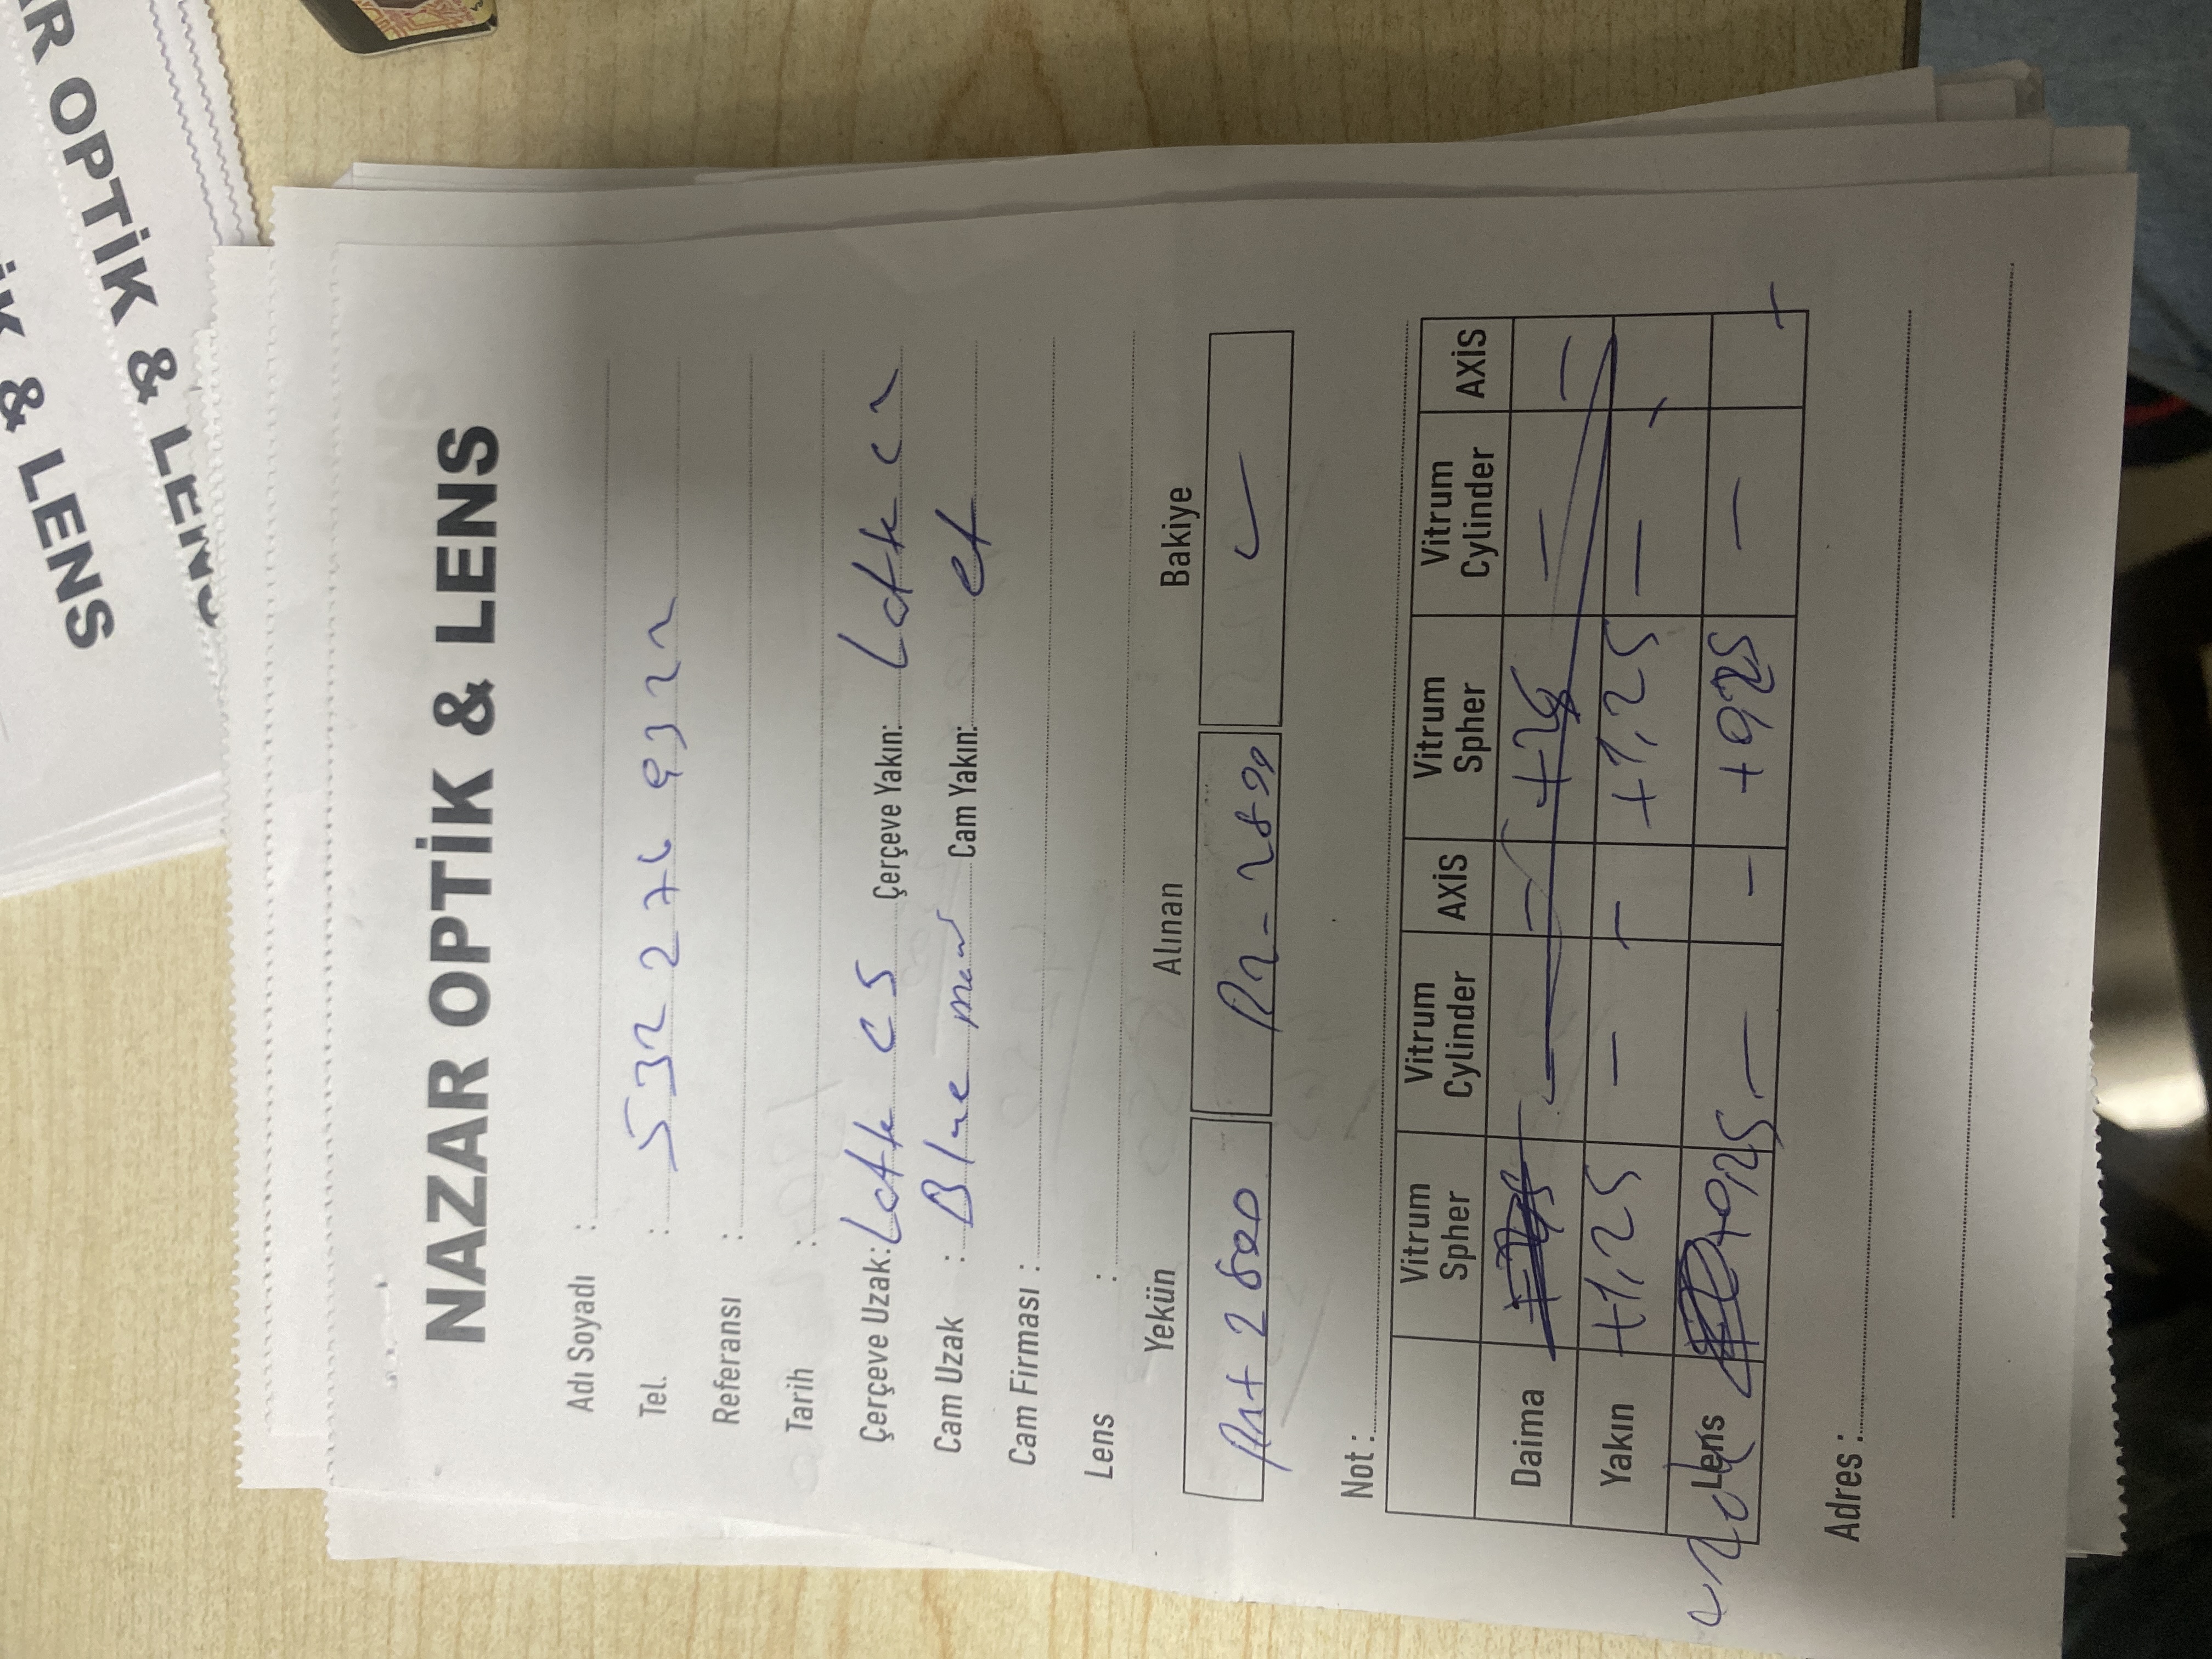 & LENS
OPTİK & LENS
NAZAR OPTİK & LENS
Adı Soyadı :
Tel. : 532 276 9322
Referansı :
Tarih :
Çerçeve Uzak: Latte C5 Çerçeve Yakın: Latte
Cam Uzak : Blue Cam Yakın:
Cam Firması :
Lens :
Yekün Alınan Bakiye
2800 ✓
Not :
Vitrum Spher Vitrum Cylinder AXİS Vitrum Spher Vitrum Cylinder AXİS
Daima — — — —
Yakın +1,25 — — +1,25 — -
uzak Lens +0,25 — — +0,25 — -
Adres :